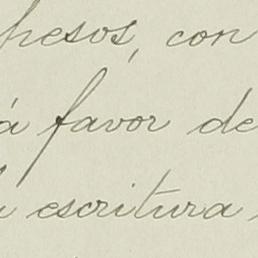 pesos, con
á favor de
escritura